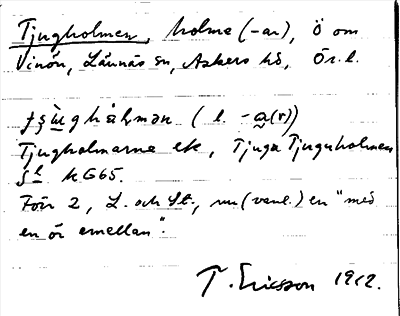 Tjugholmen, holme (-ar), Ö om
Vinön, Lännäs sn, Askers hd, Ör. l.
( l. -a(r))
Tjugholmarna ek, Tjuga Tjuguholmen
KG65.
Förr 2, L. och St., nu (vanl.) en "med
en ör emellan".
T. Ericsson 1912.